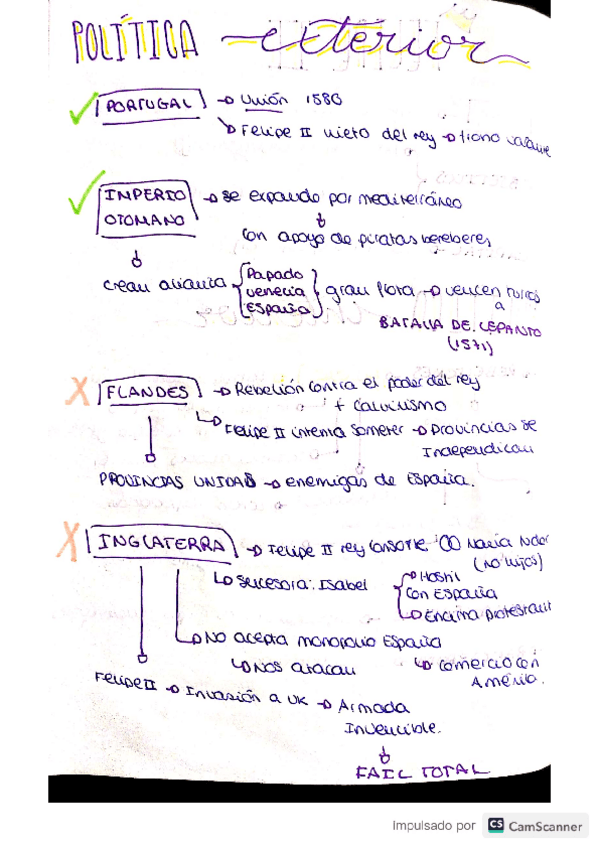 POLÍTICA exterior
PORTUGAL → Unión 1580
→ Felipe II nieto del rey → trono vacante
IMPERIO OTOMANO → se expande por mediterráneo
con apoyo de piratas bereberes
crean alianza { Papado venecia España } gran flota → vencen turcos
a
BATALLA DE LEPANTO
(1571)
FLANDES → Rebelión contra el poder del rey
+ calvinismo
→ Felipe II intenta someter → Provincias se
Independizan
PROVINCIAS UNIDAS → enemigas de España.
INGLATERRA → Felipe II rey consorte María Tudor
(no hijos)
→ sucesora: Isabel
→ Hostil
con España
→ Encima protestante
→ No acepta monopolio España
→ Nos atacan
→ comercio con
América.
Felipe II → Invasión a UK → Armada
Invencible.
FAIL TOTAL
Impulsado por CS CamScanner